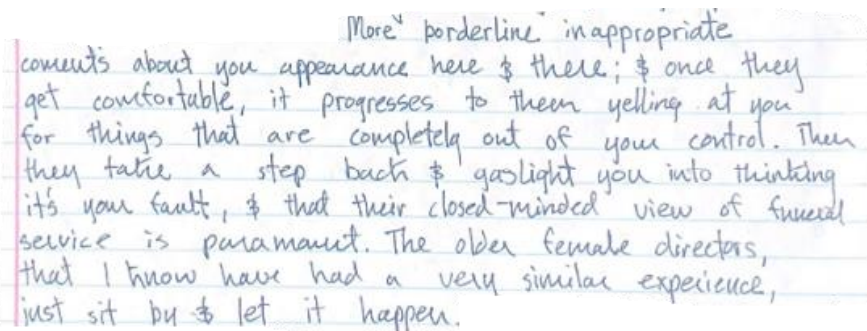 More borderline inappropriate
coments about you appearance here & there; & once they
get comfortable, it progresses to them yelling at you
for things that are completely out of your control. Then
they take a step back & gaslight you into thinking
it's your fault, & that their closed-minded view of funeral
service is paramount. The older female directors,
that I know have had a very similar experience,
just sit by & let it happen.